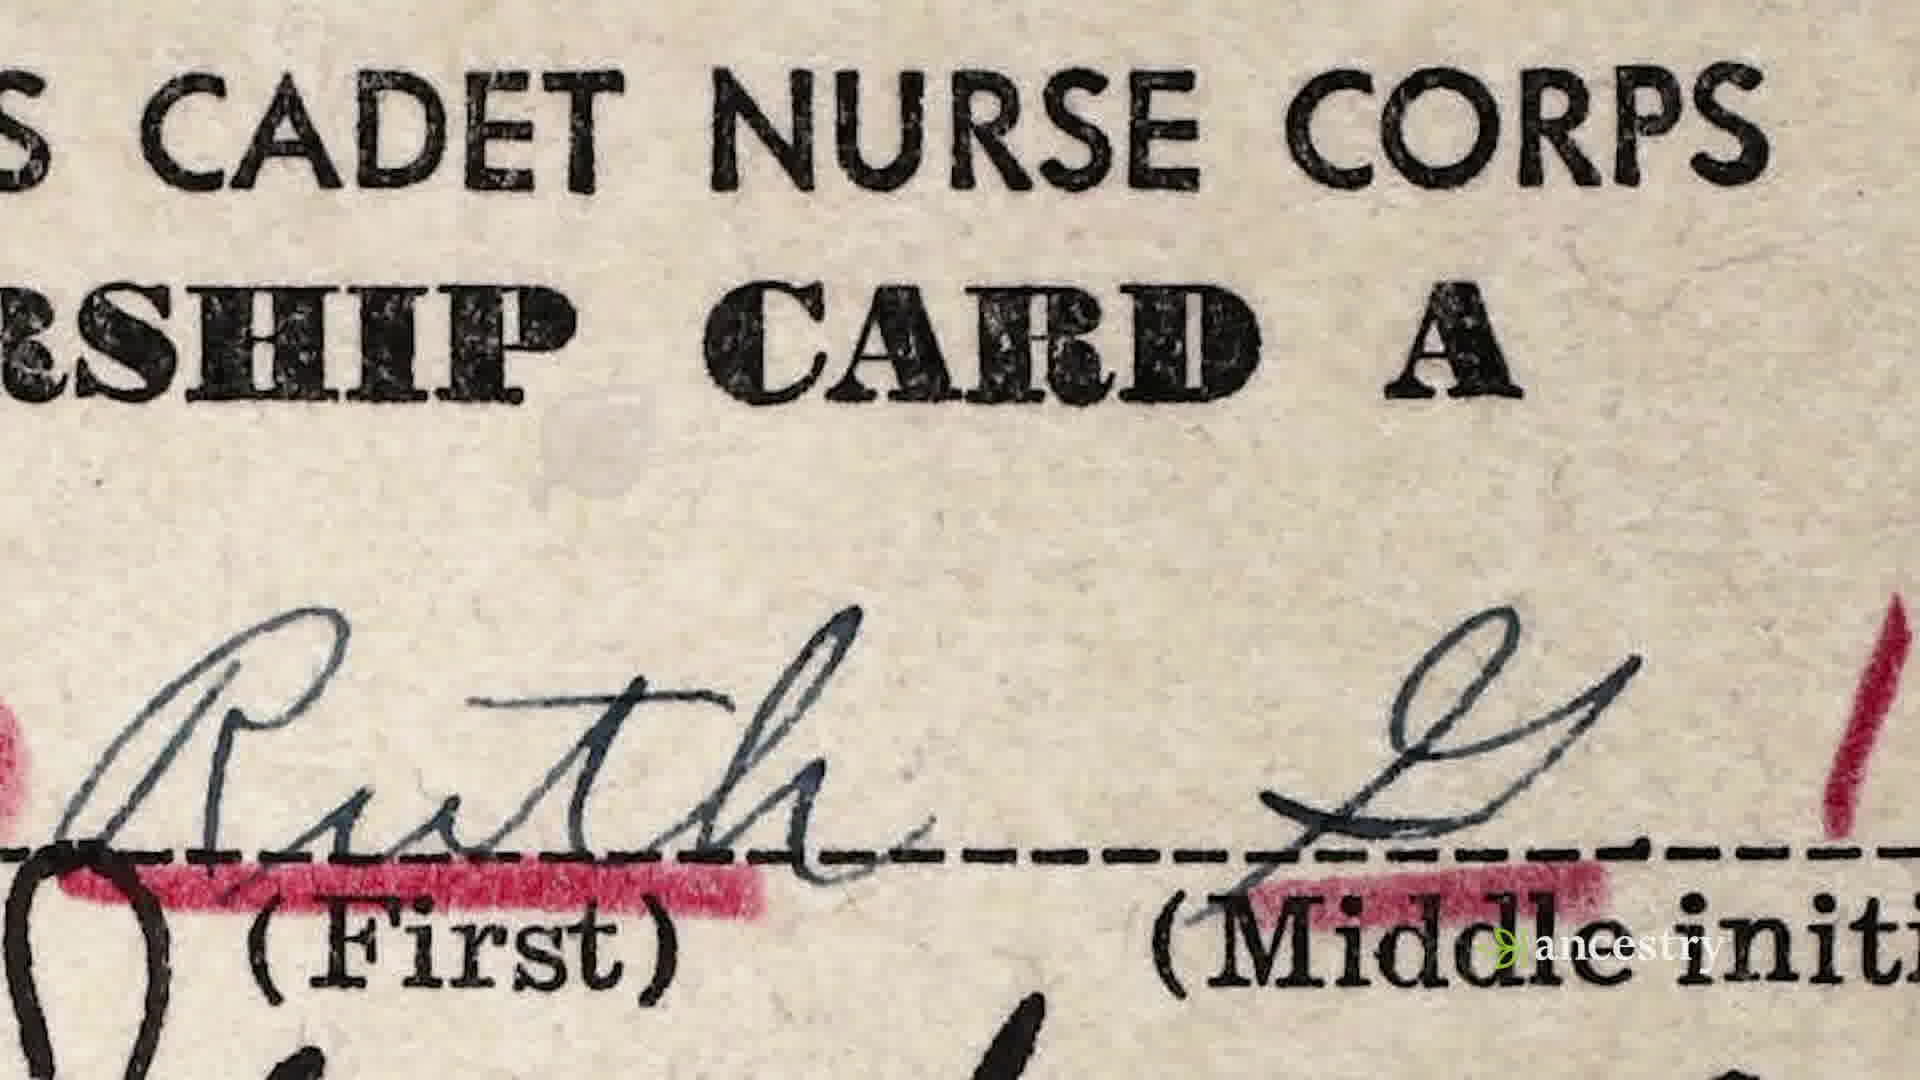 S CADET NURSE CORPS
RSHIP CARD A
Ruth G
(First) (Middle initi
ancestry